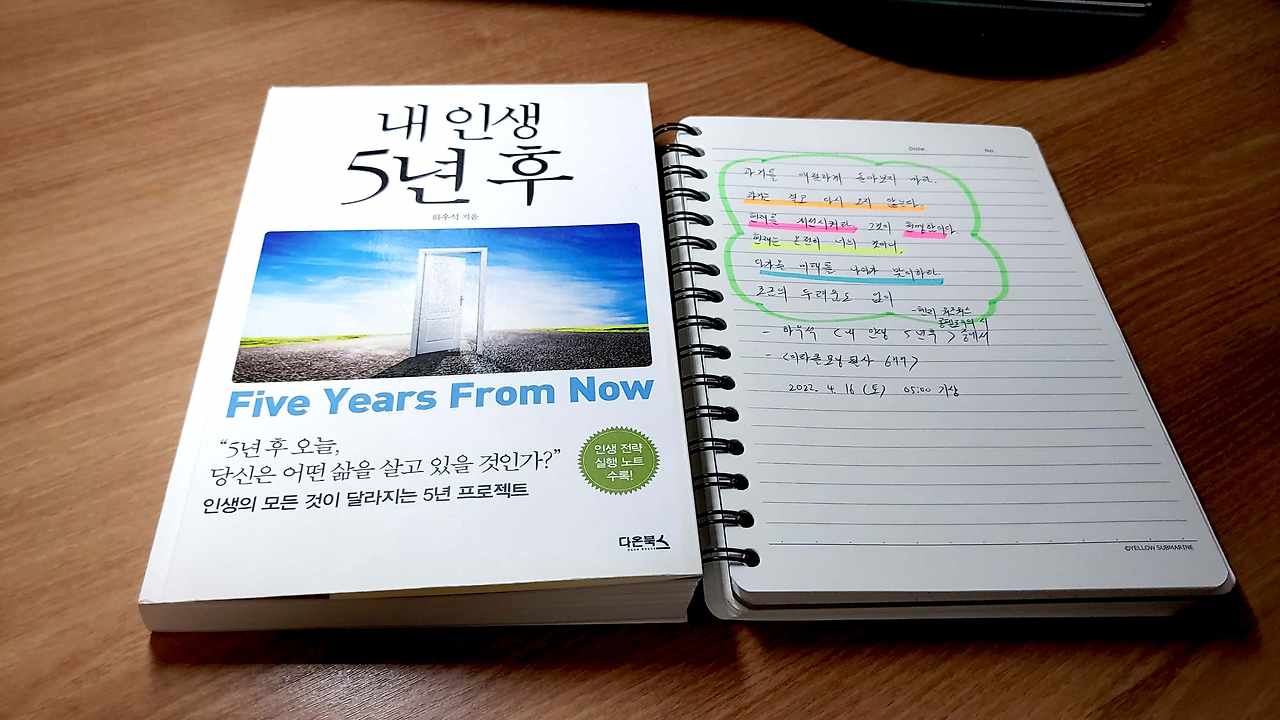 내 인생
5년 후
하우석 지음
Five Years From Now
“5년 후 오늘,
당신은 어떤 삶을 살고 있을 것인가?”
인생의 모든 것이 달라지는 5년 프로젝트
인생 전략
실행 노트
수록!
다온북스
Date
No.
과거를 애절하게 돌아보지 마라.
과거는 결코 다시 오지 않는다.
현재를 개선시켜라 그것이 현명함이다
현재는 온전히 너의 것이니,
다가올 미래를 나아가 맞이하라
조금의 두려움도 없이
- 헨리 워즈워스
롱펠로우의 시
- 하우석 <내 인생 5년후> 중에서
2022. 4. 16 (토) 05:00 기상
©YELLOW SUBMARINE